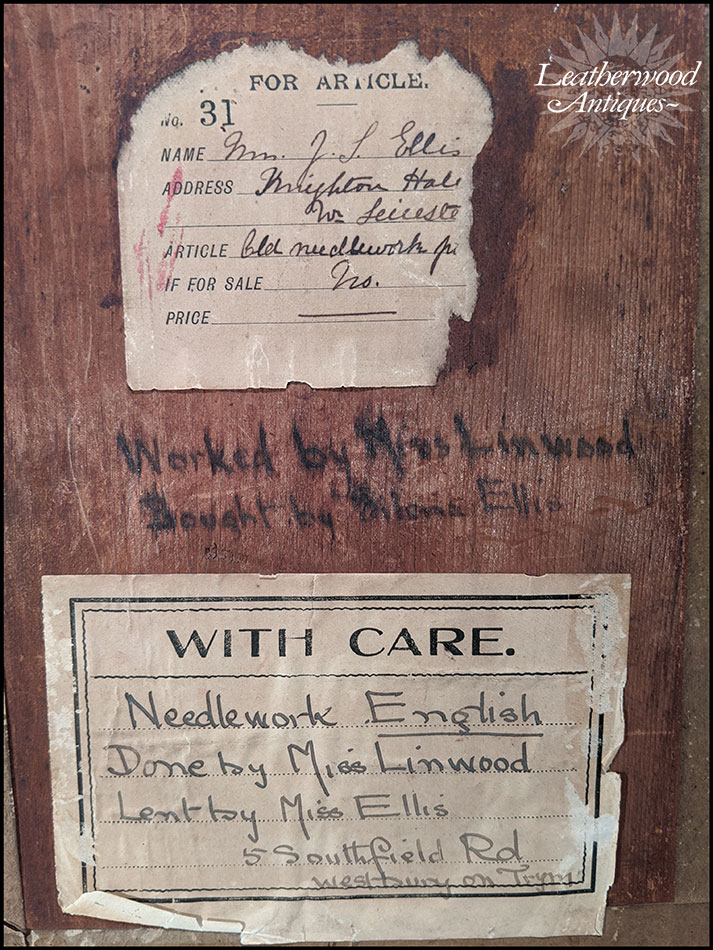 Leatherwood
Antiques~
FOR ARTICLE.
No. 31
NAME Mrs. J. S. Ellis
ADDRESS Knighton Hal
Nr Leiceste
ARTICLE Old needlework pi
IF FOR SALE No.
PRICE
Worked by Miss Linwood
Bought by Ellis
WITH CARE.
Needlework English
Done by Miss Linwood
Lent by Miss Ellis
5 Southfield Rd
Westbury on Trym